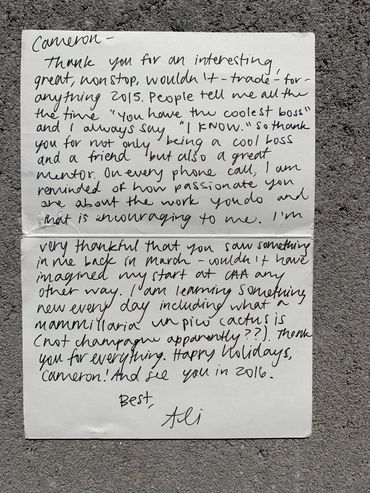 Cameron -
Thank you for an interesting,
great, nonstop, wouldn't - trade - for -
anything 2015. People tell me all the
the time "You have the coolest boss"
and I always say "I KNOW." So thank
you for not only being a cool boss
and a friend but also a great
mentor. On every phone call, I am
reminded of how passionate you
are about the work you do and
that is encouraging to me. I'm
very thankful that you saw something
in me back in march - wouldn't have
imagined my start at CAA any
other way. I am learning something
new every day including what a
mammillaria un pico cactus is
(not champagne apparently??). Thank
you for everything. Happy Holidays,
Cameron! And see you in 2016.
Best,
Ali